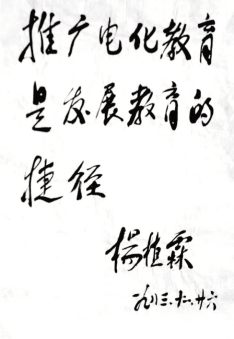 推广电化教育
是发展教育的
捷径
杨植霖
一九八三.十二.廿六